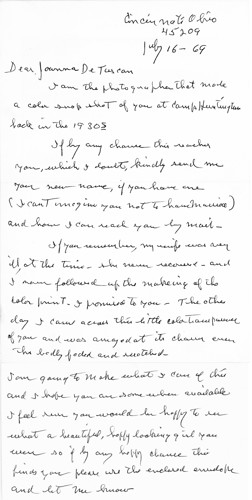 Cincinnati Ohio
45209
July 16 - 69
Dear Joanna De Tuscan
I am the photographer that made
a color snap shot of you at camp
back in the 1930s
If by any chance this reaches
you, which I doubt, kindly send me
your new name, if you have one
(I can't imagine you not to have married)
and how I can reach you by mail -
If you remember, my wife was very
ill at the time - she never recovered - and
I never followed up the making of the
color print. I promised to you - The other
day I came across this little color transparency
of you and was amazed at its charm even
tho badly faded and
I am going to make what I can of this
and I hope you are some when available
I feel sure you would be happy to see
what a beautiful, happy looking girl you
were so if by any happy chance this
finds you please use the enclosed envelope
and let me know